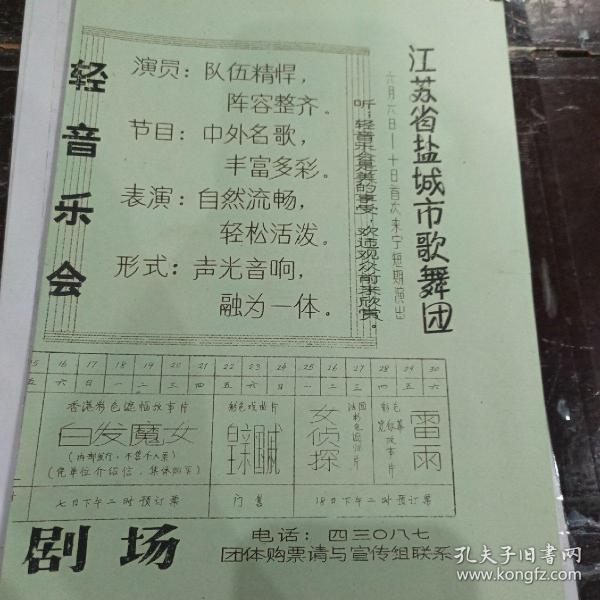 江苏省盐城市歌舞团
六月六日—十日首次来宁短期演出
听轻音乐会是美的享受，欢迎观众前来欣赏。
轻音乐会
演员：队伍精悍，
阵容整齐。
节目：中外名歌，
丰富多彩。
表演：自然流畅，
轻松活泼。
形式：声光音响，
融为一体。
15 16 17 18 19 20 21 22 23 24 25 26 27 28 29 30
五 六 日 一 二 三 四 五 六 日 一 二 三 四 五 六
香港彩色遮幅故事片
白发魔女
(凭单位介绍信，集体购买)
彩色戏曲片
女侦探
法国彩色遮幅片
彩色宽银幕故事片
雷雨
七日下午二时预订票
门售
18日下午二时预订票
剧场
电话：四三〇八七
团体购票请与宣传组联系
孔夫子旧书网
www.kongfz.com